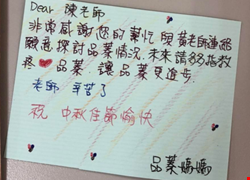 Dear 陳老師
非常感謝您的幫忙 跟黃老師連絡
願意探討品蓁情況. 未來請多指教
疼❤品蓁. 讓品蓁更進步.
老師 辛苦了
祝 中秋佳節愉快
品蓁媽媽